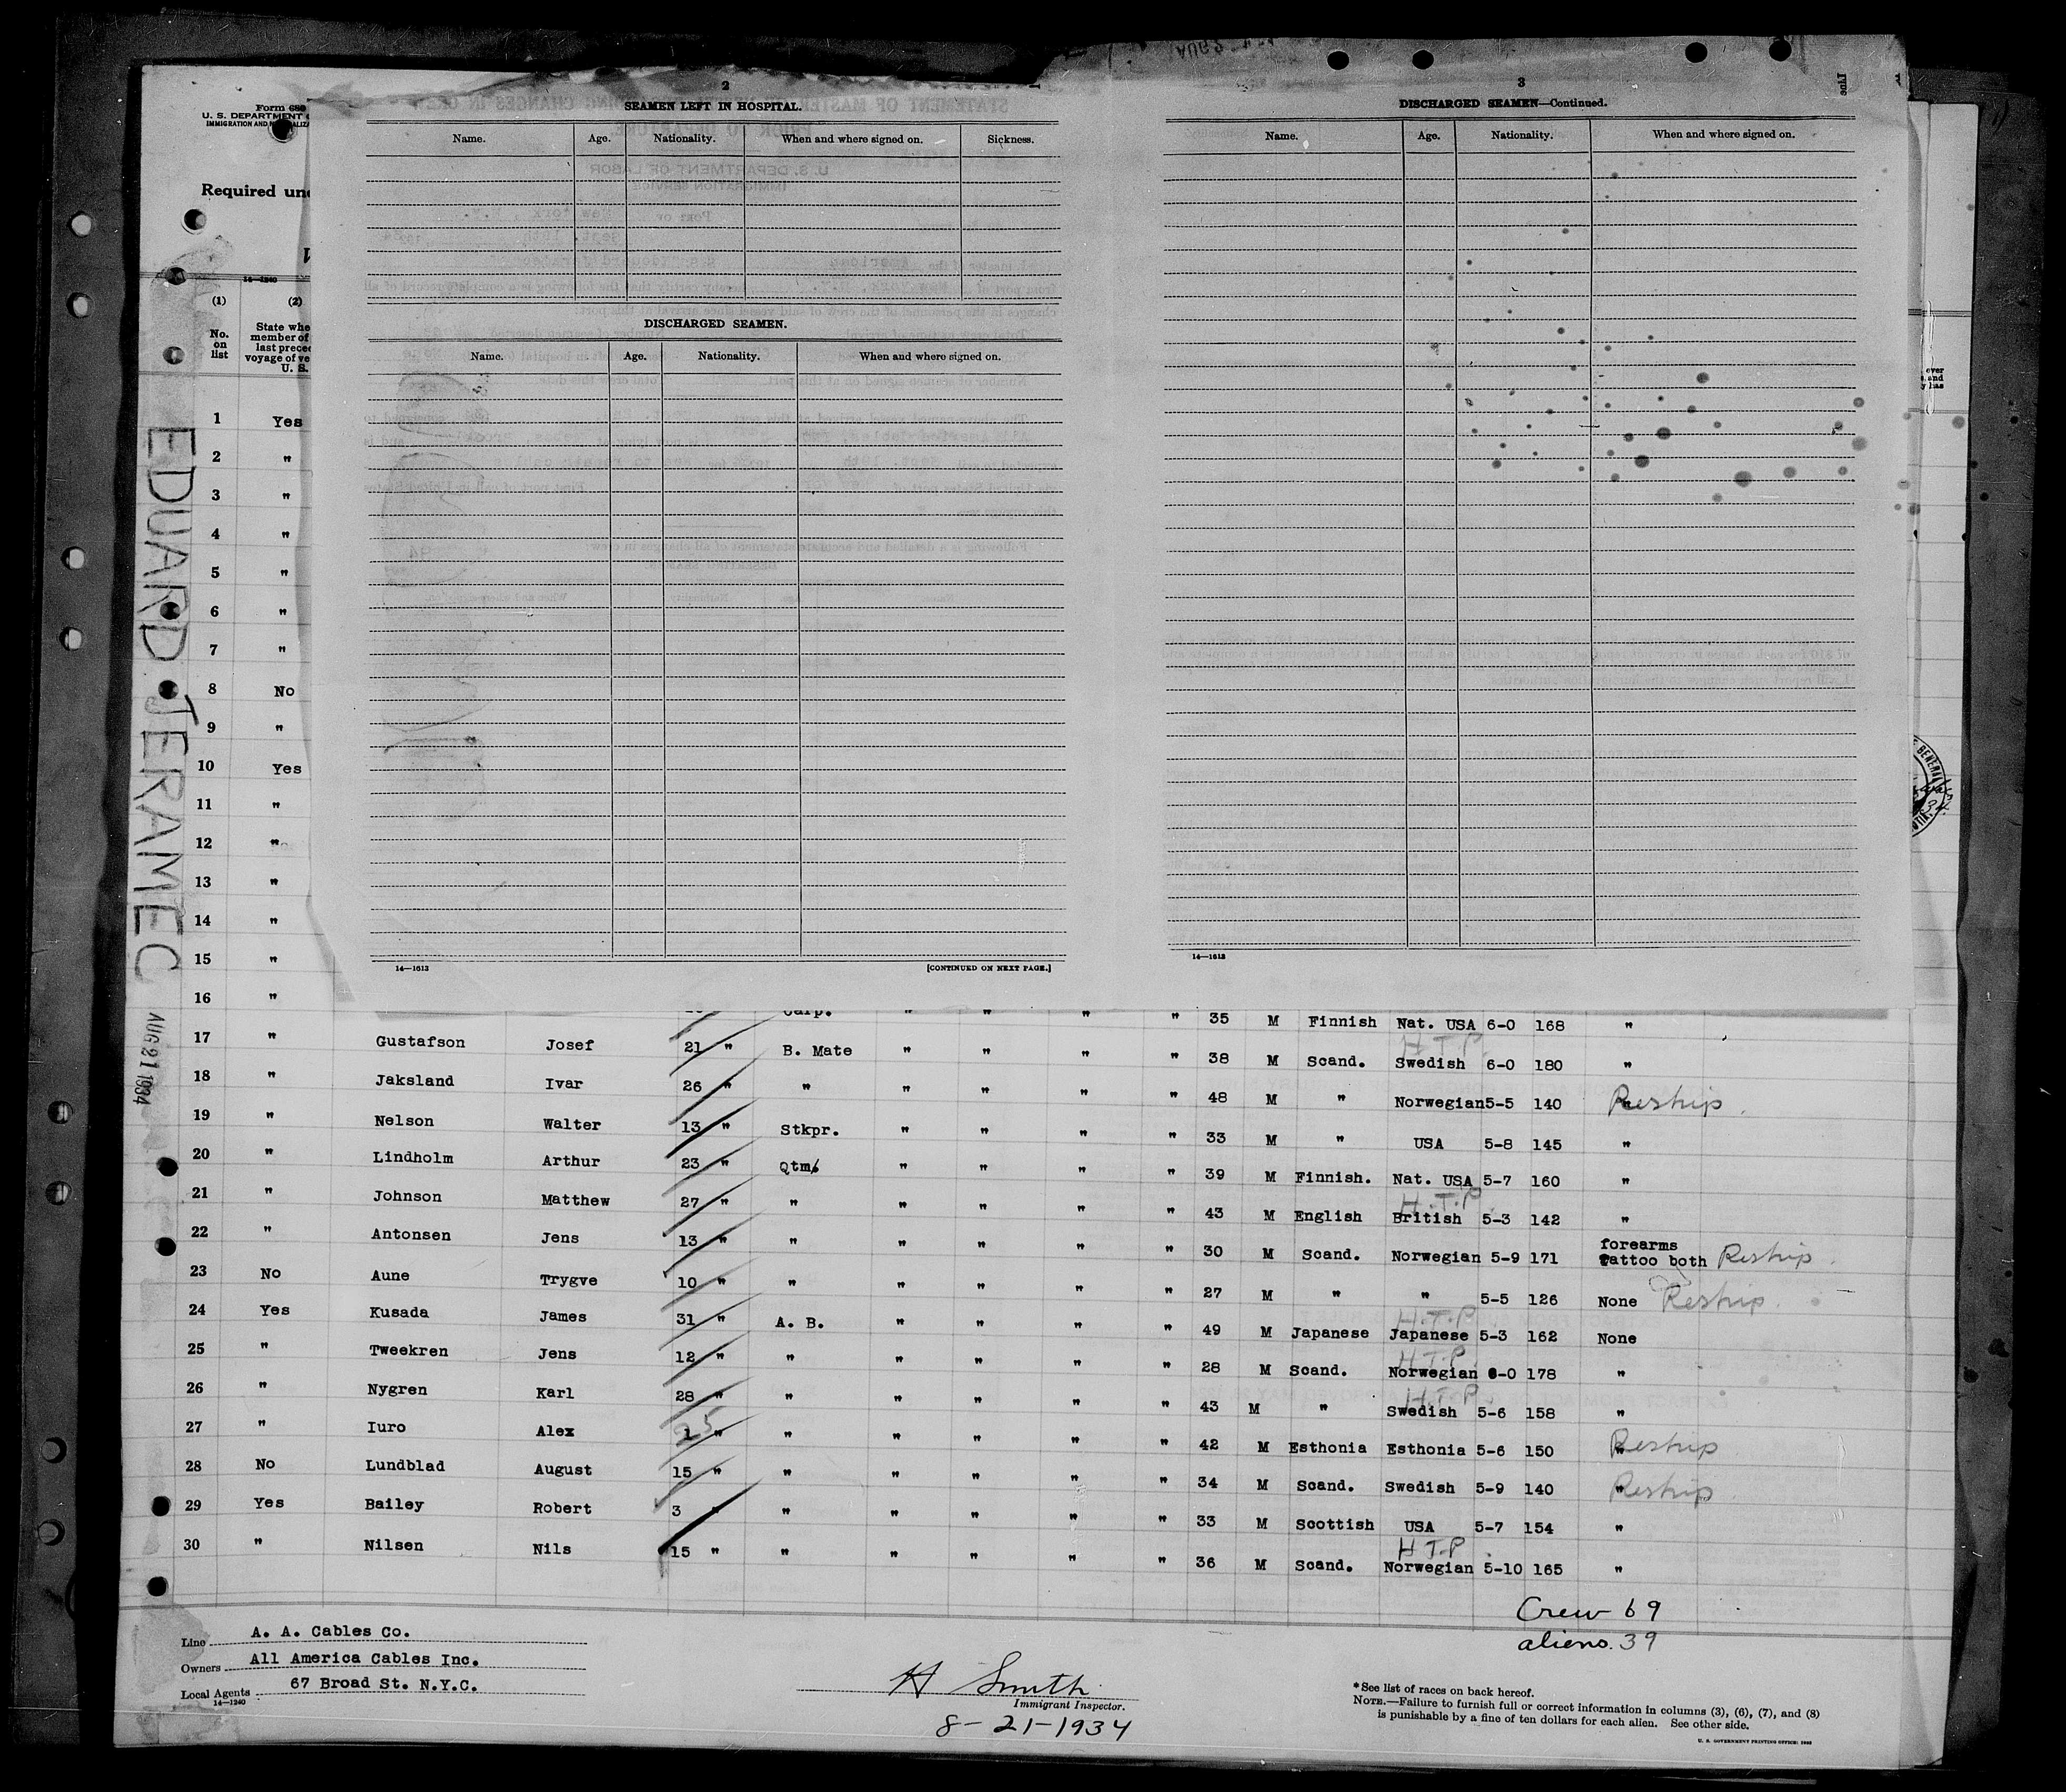 Form 680
U. S. DEPARTMENT
IMMIGRATION AND
Required
14—1240
(1) (2)
No. on list
State whe
member of
last prece
voyage of ve
U. S.
EDUARD JERAMEC
AUG 21 1934
2
SEAMEN LEFT IN HOSPITAL.
Name. Age. Nationality. When and where signed on. Sickness.
DISCHARGED SEAMEN.
Name. Age. Nationality. When and where signed on.
14—1613 [CONTINUED ON NEXT PAGE.]
3
DISCHARGED SEAMEN—Continued.
Name. Age. Nationality. When and where signed on.
14—1613
1 Yes
2 "
3 "
4 "
5 "
6 "
7 "
8 No
9 "
10 Yes
11 "
12 "
13 "
14 "
15 "
16 " Carp. " " " " 35 M Finnish Nat. USA 6-0 168 "
17 " Gustafson Josef 21 " B. Mate " " " " 38 M Scand. H T P Swedish 6-0 180 "
18 " Jaksland Ivar 26 " " " " " " 48 M " Norwegian 5-5 140 " Reship.
19 " Nelson Walter 13 " Stkpr. " " " " 33 M " USA 5-8 145 "
20 " Lindholm Arthur 23 " Qtm. " " " " 39 M Finnish. Nat. USA 5-7 160 "
21 " Johnson Matthew 27 " " " " " " 43 M English H.T.P British 5-3 142 "
22 " Antonsen Jens 13 " " " " " " 30 M Scand. Norwegian 5-9 171 forearms tattoo both Reship.
23 No Aune Trygve 10 " " " " " " 27 M " " 5-5 126 None Reship.
24 Yes Kusada James 31 " A. B. " " " " 49 M Japanese H.T.P Japanese 5-3 162 None
25 " Tweekren Jens 12 " " " " " " 28 M Scand. H.T.P. Norwegian 6-0 178 "
26 " Nygren Karl 28 " " " " " " 43 M " H.T.P. Swedish 5-6 158 "
27 " Iuro Alex 1 25 " " " " " " 42 M Esthonia Esthonia 5-6 150 " Reship
28 No Lundblad August 15 " " " " " " 34 M Scand. Swedish 5-9 140 " Reship
29 Yes Bailey Robert 3 " " " " " " 33 M Scottish USA 5-7 154 "
30 " Nilsen Nils 15 " " " " " " 36 M Scand. H T.P. Norwegian 5-10 165 "
Crew 69
aliens. 39
Line A. A. Cables Co.
Owners All America Cables Inc.
Local Agents 67 Broad St. N.Y.C.
14—1240
H Smith
Immigrant Inspector.
8-21-1934
*See list of races on back hereof.
NOTE.—Failure to furnish full or correct information in columns (3), (6), (7), and (8)
is punishable by a fine of ten dollars for each alien. See other side.
U. S. GOVERNMENT PRINTING OFFICE: